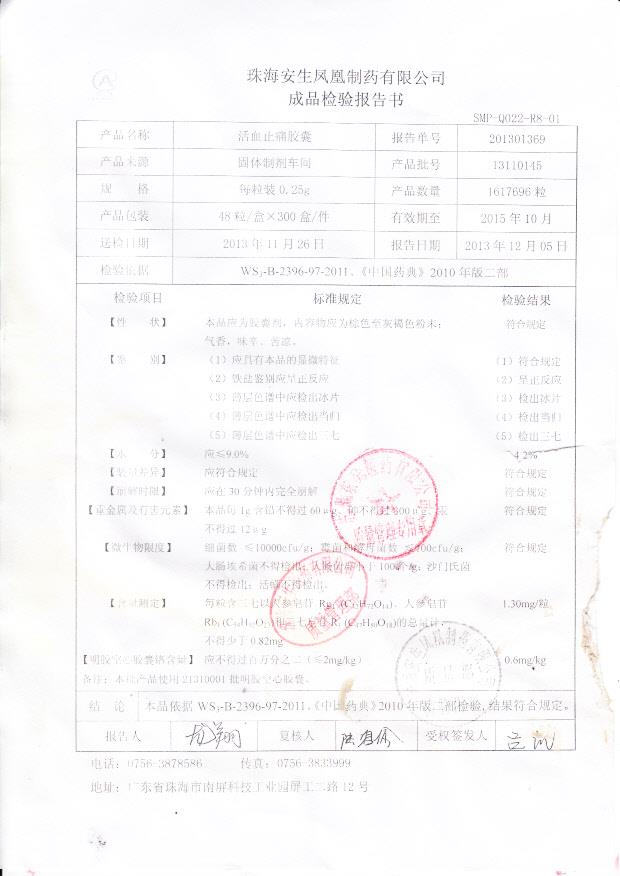 珠海安生凤凰制药有限公司
成品检验报告书
SMP-Q022-R8-01
产品名称 活血止痛胶囊 报告单号 201301369
产品来源 固体制剂车间 产品批号 13110145
规 格 每粒装 0.25g 产品数量 1617696 粒
产品包装 48 粒/盒×300 盒/件 有效期至 2015 年 10 月
送检日期 2013 年 11 月 26 日 报告日期 2013 年 12 月 05 日
检验依据 WS₃-B-2396-97-2011、《中国药典》2010 年版二部
检验项目 标准规定 检验结果
【性 状】 本品应为胶囊剂，内容物应为棕色至灰褐色粉末； 符合规定
气香，味辛、苦凉。
【鉴 别】 （1）应具有本品的显微特征 （1）符合规定
（2）铁盐鉴别应呈正反应 （2）呈正反应
（3）薄层色谱中应检出冰片 （3）检出冰片
（4）薄层色谱中应检出当归 （4）检出当归
（5）薄层色谱中应检出三七 （5）检出三七
【水 分】 应≤9.0% 4.2%
【装量差异】 应符合规定 符合规定
【崩解时限】 应在 30 分钟内完全崩解 符合规定
【重金属及有害元素】 本品每 1g 含铅不得过 60μg 不得过 符合规定
不得过 12μg
【微生物限度】 细菌数 ≤10000cfu/g；霉菌和酵母菌数 ≤100cfu/g； 符合规定
大肠埃希菌不得检出；大肠菌群小于 100个/g；沙门氏菌
不得检出；活螨不得检出。
【含量测定】 每粒含三七以人参皂苷 Rg₁ (C₄₂H₇₂O₁₄)、人参皂苷 1.30mg/粒
Rb₁ 的总量计，
不得少于 0.82mg
【明胶空心胶囊铬含量】 应不得过百万分之二（≤2mg/kg） 0.6mg/kg
备注：本批产品使用 21310001 批明胶空心胶囊。
结 论 本品依据 WS₃-B-2396-97-2011、《中国药典》2010 年版二部检验，结果符合规定。
报告人 复核人 受权签发人
电话：0756-3878586 传真：0756-3833999
地址：广东省珠海市南屏科技工业园屏工二路 12 号